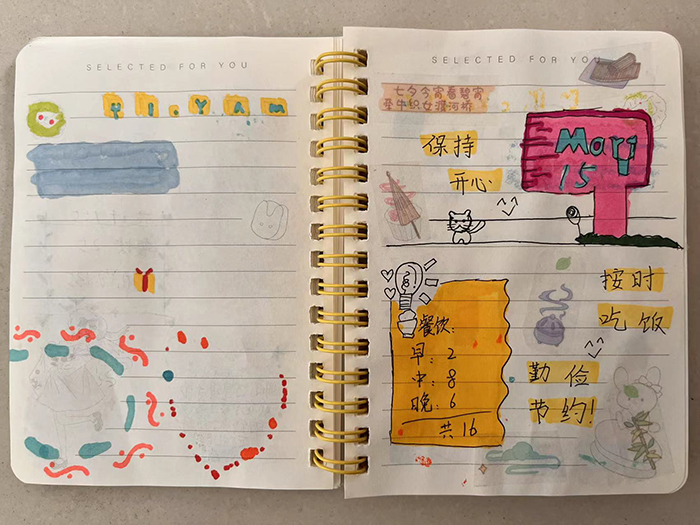 SELECTED FOR YOU
yi.YAm
SELECTED FOR YOU
七夕今宵看碧宵
牵牛织女渡河桥
保持
开心
Mary
15
按时
吃饭
餐饮:
早: 2
中: 8
晚: 6
共 16
勤俭
节约!